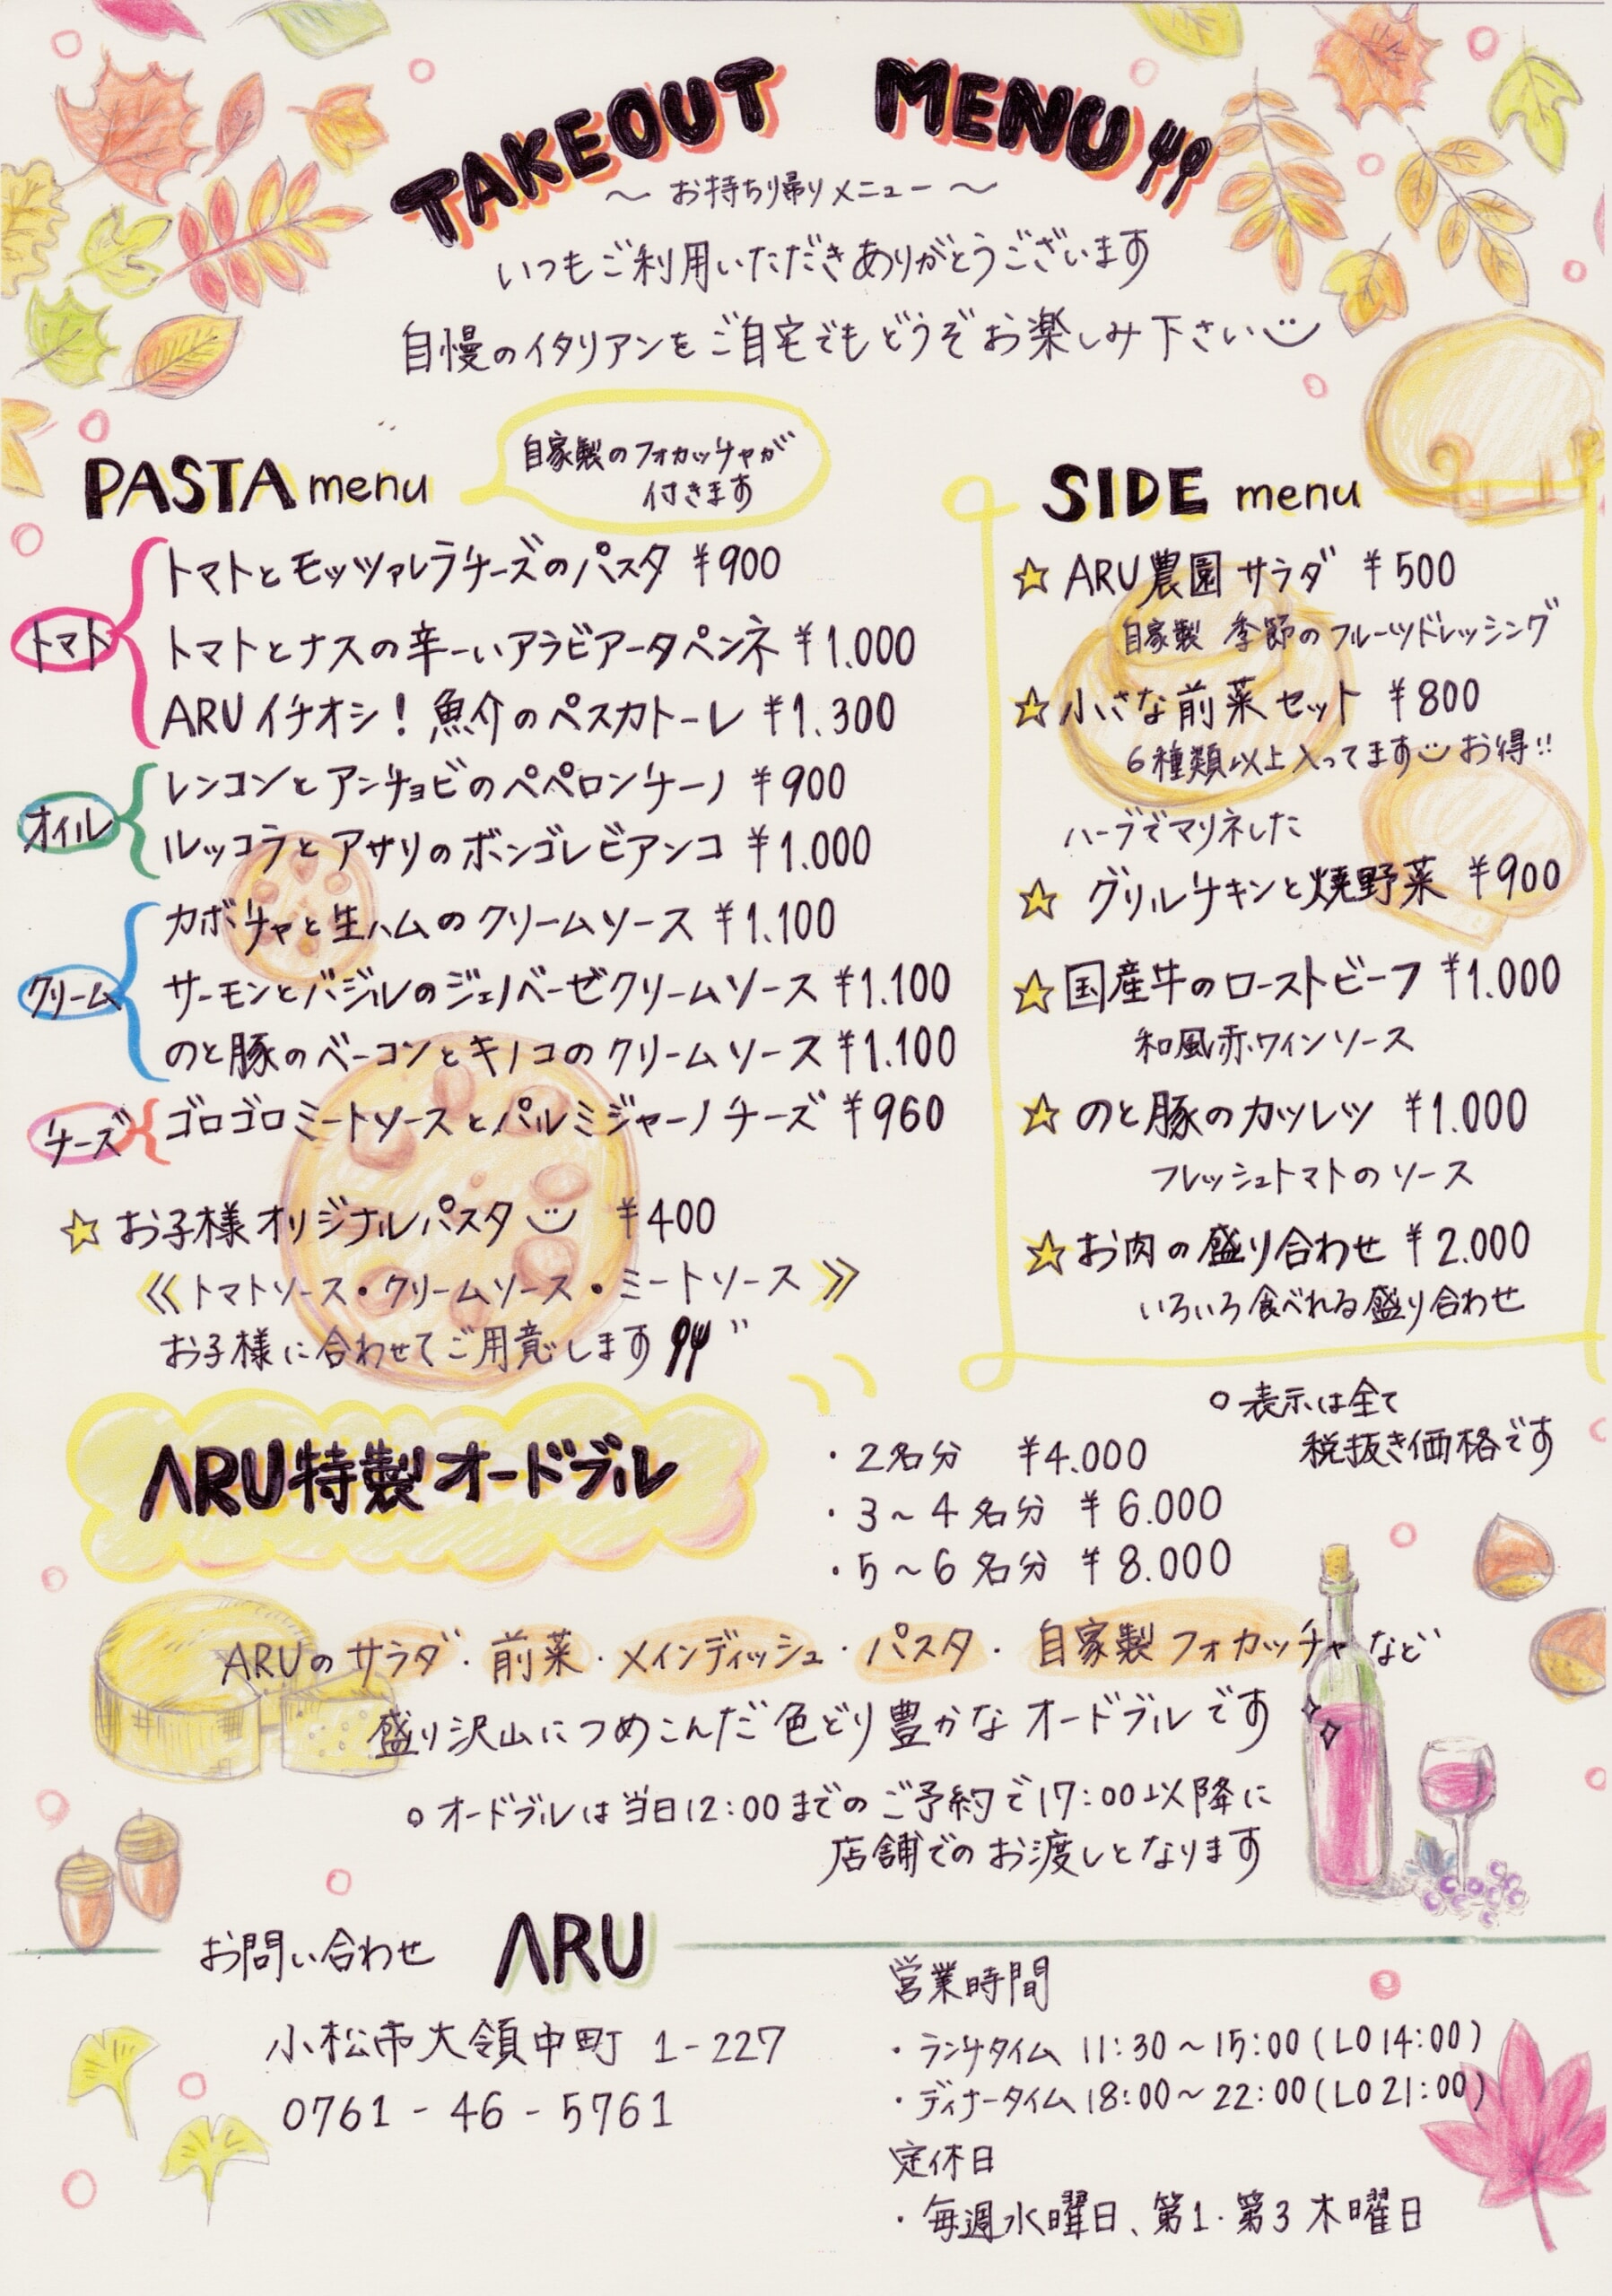 TAKEOUT MENU
〜 お持ち帰りメニュー 〜
いつもご利用いただきありがとうございます
自慢のイタリアンをご自宅でもどうぞお楽しみ下さい
PASTA menu
自家製のフォカッチャが
付きます
トマト
トマトとモッツァレラチーズのパスタ ¥900
トマトとナスの辛ーいアラビアータペンネ ¥1.000
ARUイチオシ!魚介のペスカトーレ ¥1.300
オイル
レンコンとアンチョビのペペロンチーノ ¥900
ルッコラとアサリのボンゴレビアンコ ¥1.000
クリーム
カボチャと生ハムのクリームソース ¥1.100
サーモンとバジルのジェノベーゼクリームソース ¥1.100
のと豚のベーコンとキノコのクリームソース ¥1.100
チーズ
ゴロゴロミートソースとパルミジャーノチーズ ¥960
☆お子様オリジナルパスタ ¥400
《トマトソース・クリームソース・ミートソース》
お子様に合わせてご用意します
SIDE menu
☆ARU農園サラダ ¥500
自家製 季節のフルーツドレッシング
☆小さな前菜セット ¥800
6種類以上入ってます お得!!
ハーブでマリネした
☆グリルチキンと焼野菜 ¥900
☆国産牛のローストビーフ ¥1.000
和風赤ワインソース
☆のと豚のカツレツ ¥1.000
フレッシュトマトのソース
☆お肉の盛り合わせ ¥2.000
いろいろ食べれる盛り合わせ
○表示は全て
税抜き価格です
ARU特製オードブル
・2名分 ¥4.000
・3〜4名分 ¥6.000
・5〜6名分 ¥8.000
ARUのサラダ・前菜・メインディッシュ・パスタ・自家製フォカッチャなど
盛り沢山につめこんだ色どり豊かなオードブルです
○オードブルは当日12:00までのご予約で17:00以降に
店舗でのお渡しとなります
お問い合わせ ARU
小松市大領中町 1-227
0761-46-5761
営業時間
・ランチタイム 11:30〜15:00(LO14:00)
・ディナータイム 18:00〜22:00(LO21:00)
定休日
・毎週水曜日、第1・第3木曜日